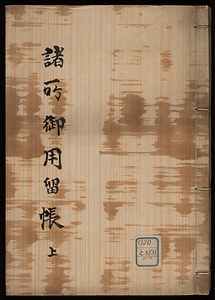 諸所御用留帳 上
020